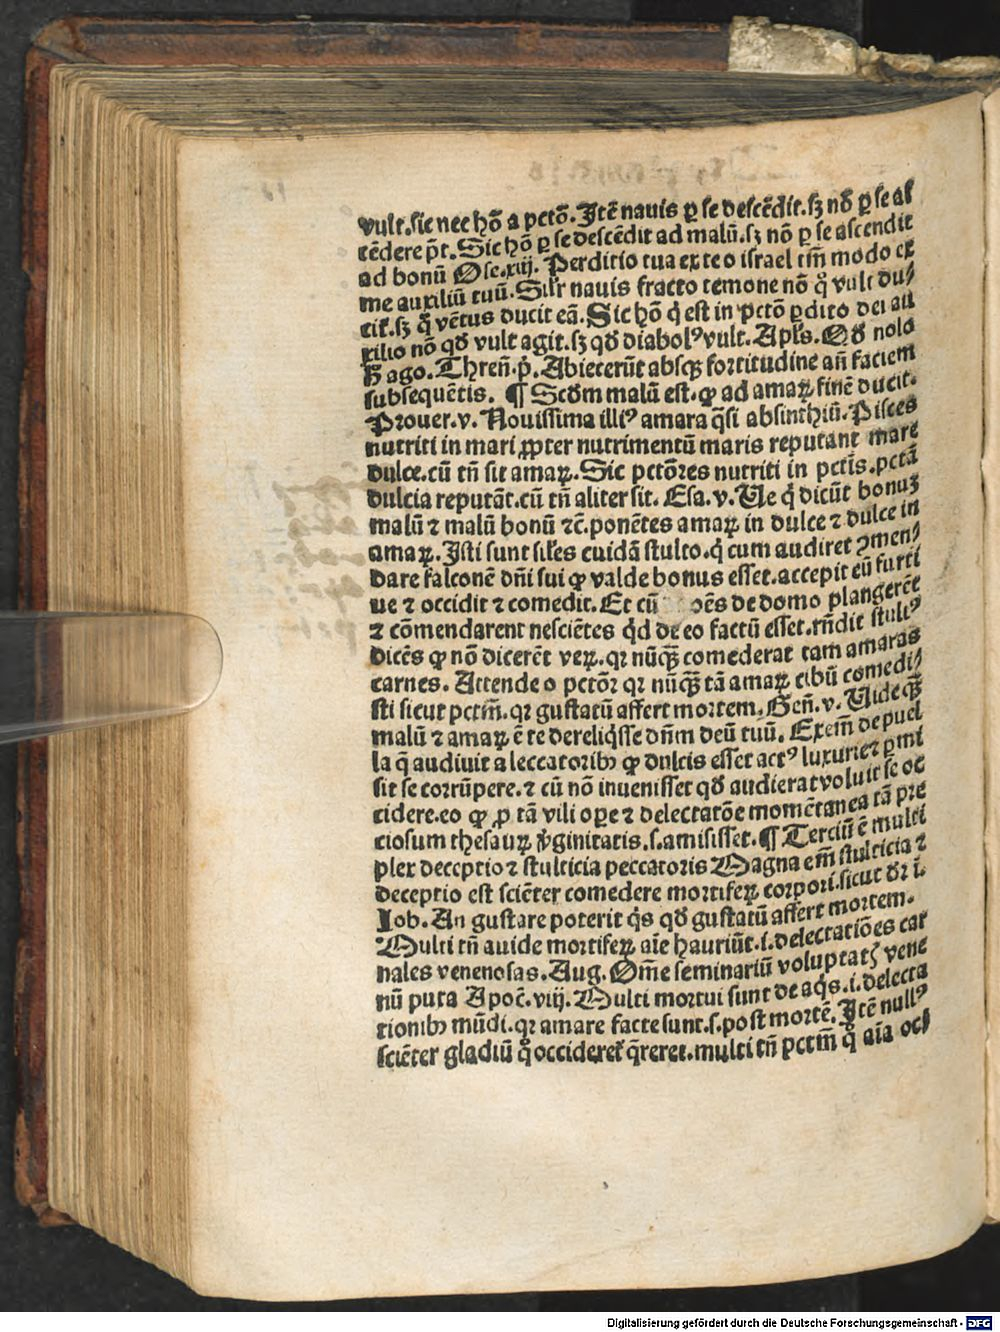 vult.sic nec hō a pctō.Itē nauis ꝑ se descēdit.sꝫ nō ꝑ se as
cēdere pt̄. Sic hō ꝑ se descēdit ad malū.sꝫ nō ꝑ se ascendit
ad bonū Ose.xiij. Perditio tua ex te o israel tm̄ modo ex
me auxiliū tuū. Silr nauis fracto temone nō qͦ vult du⸗
cit.sꝫ qͦ vētus ducit eā. Sic hō q̇ est in pctō ꝑdito dei au
xilio nō qd̄ vult agit.sꝫ qd̄ diabolꝰ vult. Apl̄s. Qd̄ nolo
h̄ ago. Thren̄.p̄. Abiecerūt absqꝫ fortitudine an̄ faciem
subsequētis. ¶ Scd̄m malū est.ꝙ ad amaꝝ finē ducit.
Prouer.v. Nouissima illiꝰ amara q̄si absinthiū. Pisces
nutriti in mari ꝓpter nutrimentū maris reputant mare
dulce.cū tn̄ sit amaꝝ. Sic pctōres nutriti in pctīs.pctā
dulcia reputāt.cū tn̄ aliter sit. Esa.v. Ue q̇ dicūt bonuꝫ
malū ⁊ malū bonū ⁊c̄.ponētes amaꝝ in dulce ⁊ dulce in
amaꝝ. Isti sunt sil̄es cuidā stulto.q̇ cum audiret ꝯmen⸗
dare falconē dn̄i sui ꝙ valde bonus esset.accepit eū furti
ue ⁊ occidit ⁊ comedit. Et cū oēs de domo plangerēt
⁊ cōmendarent nesciētes qͥd de eo factū esset.rn̄dit stultꝰ
dicēs ꝙ nō dicerēt veꝝ.qꝛ nūqꝫ̄ comederat tam amaras
carnes. Attende o pctōr qꝛ nūqꝫ̄ tā amaꝝ cibū comedi⸗
sti sicut pctm̄.qꝛ gustatū affert mortem. Gen̄.v. Uide qꝫ̄
malū ⁊ amaꝝ ē te dereliq̇sse dn̄m deū tuū. Exem̄ de puel
la q̄ audiuit a leccatoribꝫ ꝙ dulcis esset actꝰ luxurie ⁊ ꝑmi
sit se corrūpere.⁊ cū nō inuenisset qd̄ audierat voluit se oc
cidere.eo ꝙ ꝓ tā vili oꝑe ⁊ delectatōe momētanea tā pre
ciosum thesauꝝ v̓ginitatis.s.amisisset. ¶ Terciū ē multi
plex deceptio ⁊ stulticia peccatoris Magna em̄ stulticia ⁊
deceptio est sciēter comedere mortifeꝝ corpori.sicut dr̄ i.
Iob. An gustare poterit q̇s qd̄ gustatū affert mortem.
Multi tn̄ auide mortifeꝝ aīe hauriūt.i.delectatiōes car
nales venenosas. Aug. Om̄e seminariū voluptatꝭ vene
nū puta Apoc̄.viij. Multi mortui sunt de aq̇s.i.delecta
tionibꝫ mūdi.qꝛ amare facte sunt.s.post mortē. Itē nullꝰ
sciēter gladiū qͦ occideret̉ q̄reret.multi tn̄ pctm̄ qͦ aīa occ
Digitalisierung gefördert durch die Deutsche Forschungsgemeinschaft - DFG